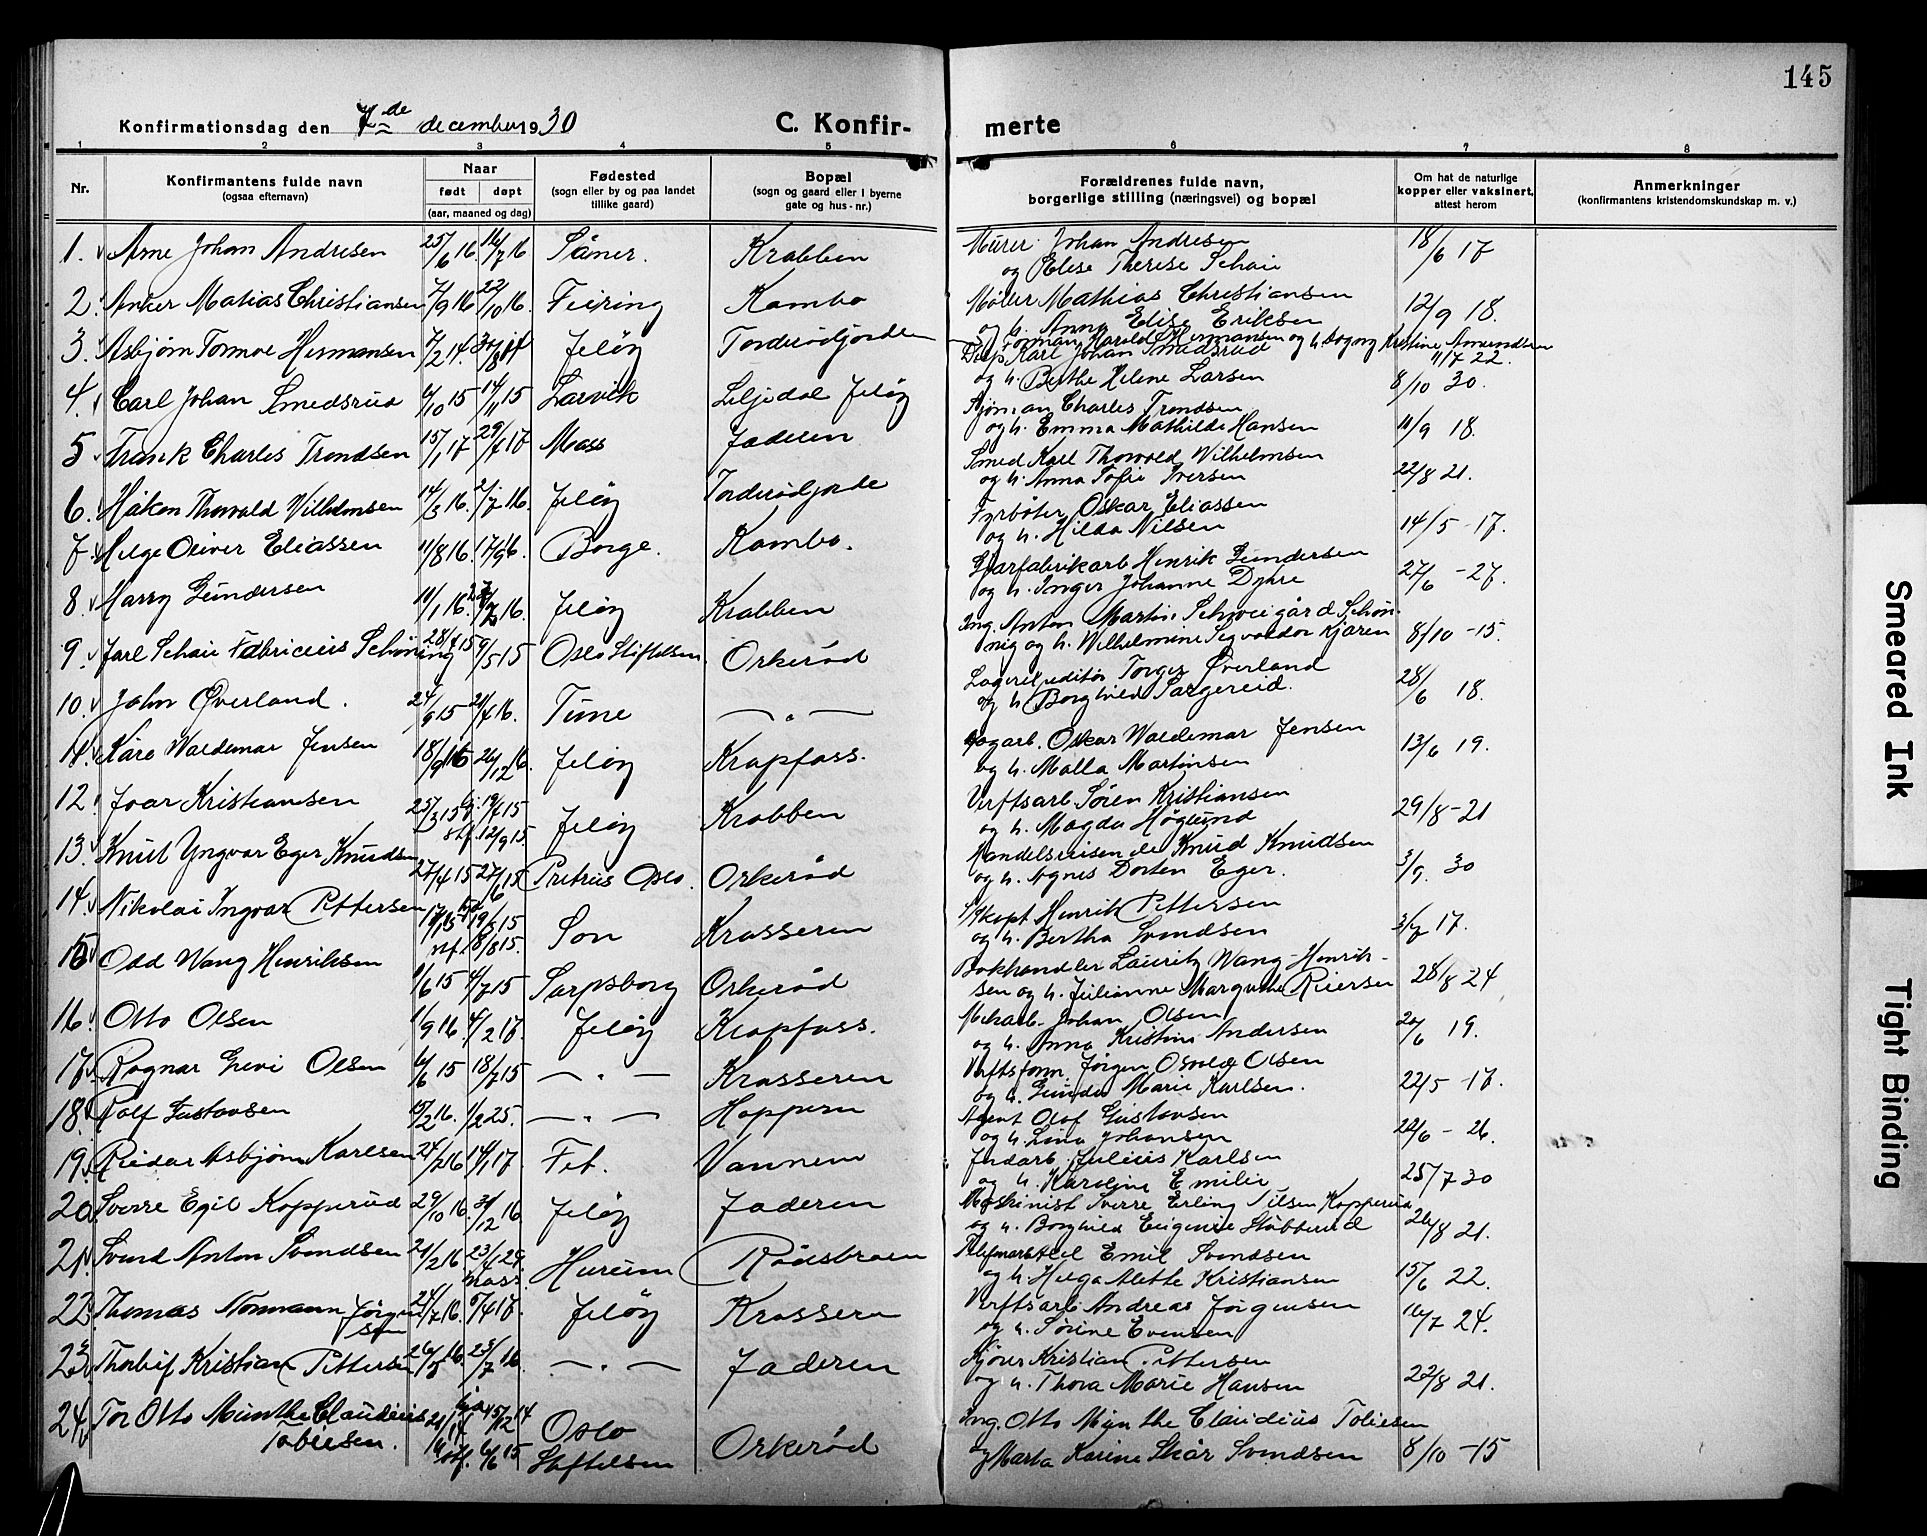 145
Konfirmationsdag den 7de december 1930
C. Konfir- merte
1 2 3 4 5 6 7 8
Nr.
Konfirmantens fulde navn
(ogsaa efternavn)
Naar
født døpt
(aar, maaned og dag)
Fødested
(sogn eller by og paa landet
tillike gaard)
Bopæl
(sogn og gaard eller i byerne
gate og hus-nr.)
Forældrenes fulde navn,
borgerlige stilling (næringsvei) og bopæl
Om hat de naturlige
kopper eller vaksinert,
attest herom
Anmerkninger
(konfirmantens kristendomskundskap m. v.)
1. Arne Johan Andresen 25/6 16. 16/7 16 Såner. Krabben
Murer Johan Andresen 18/6 17
og Elise Therese Schau
2. Anker Matias Christiansen 7/9 16 22/10 16. Feiring Kambo
Møller Mathias Christiansen 12/9 18.
og h. Anna Elise Eriksen
3. Asbjørn Tormoe Hermansen Jeløy Torderødjordet
Forman Harald Hermansen og h. Dagny Kristine Amundsen 11/7 22.
4. Carl Johan Smedsrud 6/10 15 14/11 15 Larvik Liljedal Jeløy
Disp. Karl Johan Smedsrud
og h. Berthe Helene Larsen 8/10 30.
5 Frank Charles Trondsen 15/1 17 29/7 17 Moss Jaderen
Sjøman Charles Trondsen
og h. Emma Mathilde Hansen 11/9 18.
6. Håkon Thorvald Vilhelmsen 14/5 16. 2/7 16. Jeløy Torderødjorde
Smed Karl Thorvald Vilhelmsen
og h. Anna Sofie Iversen 22/8 21.
7. Helge Oliver Eliassen 11/8 16. 17/9 16. Borge. Kambo.
Fyrbøter Oskar Eliassen
og h. Hilda Nilsen 14/5 -17.
8. Harry Gundersen 11/1 16. Jeløy Krabben
Glasfabrikarb Henrik Gundersen
og h. Inger Johanne Dyhre 27/6 -27.
9. Jarl Schau Fabricius Schøning 28/4 15 9/5 15 Oslo Stiftelsen. Orkerød
Ing. Anton Martin Schweigård Schøn-
nig og h. Wilhelmine Segvaldor Kjæren 8/10 -15.
10. John Øverland. 24/9 15 24/4 16. Time — „ —
Lagerekspeditør Torger Øverland
og h. Borghild Sargereid. 28/6 18.
11. Kåre Waldemar Jensen 18/9 16 26/12 16. Jeløy Krapfoss.
Oskar Waldemar Jensen
og h. Malla Martinsen 13/6 19.
12 Ivar Kristiansen 25/3 15 hj. 19/4 15 Jeløy Krabben
stf. 12/9 15.
Verftsarb Søren Kristiansen
og h. Magda Høglund 29/8 -21
13. Knut Yngvar Eger Knudsen 27/4 15 27/6 15 Petrus Oslo. Orkerød
Handelsreisende Knud Knudsen
og h. Agnes Dorten Eger. 3/9. 30
14. Nikolai Ingvar Pettersen 19/5 15 Son Krasseren
stf. 8/8 15.
Henrik Pettersen
og h. Bertha Svendsen 3/7 17.
15 Odd Wang Henriksen 1/6 15 4/7 15 Sarpsborg Orkerød
Bokhandler Lauritz Wang-Henrik-
sen og h. Julianne Margrethe Riersen 28/8 -24
16. Otto Olsen 1/9 16 4/2 17. Jeløy Krapfoss.
Mekarb. Johan Olsen
og h. Anna Kristine Andersen 20/6 19.
17. Ragnar Levi Olsen 6/6 15 18/7 15 — „ — Krasseren
Verftsform. Jørgen Osvald Olsen
og h. Gunda Marie Karlsen. 22/5 -17.
18. Rolf Gustavsen 10/2 16. 1/2 25. — „ — Hoppern
Agent Olof Gustavsen
og h. Lina Johansen 20/6 - 26.
19. Reidar Asbjørn Karlsen 24/7 16 14/1 17. Fet. Vannem
Jordarb. Julius Karlsen
og h. Karoline Emilie 25/7 30
20 Sverre Egil Kopperud 29/10 16. 31/12 16 Jeløy Jaderen
Maskinist Sverre Erling Nilsen Kopperud
og h. Borghild Eugenie Stubberud 26/8 21.
21. Svend Anton Svendsen 21/2 16 23/1 29. Hurum Rødsbraten
Moss
Emil Svendsen
og h. Helga Alette Kristiansen 15/6 22.
22. Thomas Normann Jørgensen 9/4 17. Jeløy Krasseren
Verftsarb Andreas Jørgensen
og h. Sørine Evensen 16/7 24.
23. Thorleif Kristian Pettersen 23/7 16. — „ — Jaderen
Kjører Kristian Pettersen
og h. Thora Marie Hansen 22/8 21.
24. Tor Otto Munthe Claudius
Tobiesen. Oslo Stiftelsen Orkerød
stf. 6/6 15
Ing. Otto Munthe Claudius Tobiesen
og Marta Karine Skår Svendsen 8/10 -15
Smeared Ink
Tight Binding